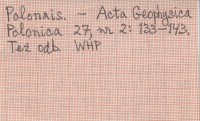 Polonais. - Acta Geophysica
Polonica 27, nr 2: 133-143.
Też odb. WHP